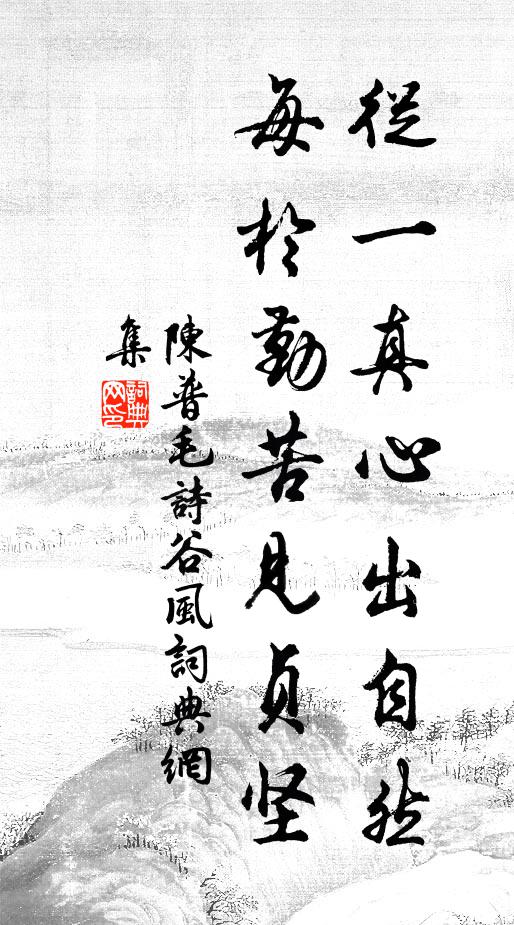 從一真心出自然
每於勤苦見貞坚
陳普毛詩谷風詞典網
集
詞典網印